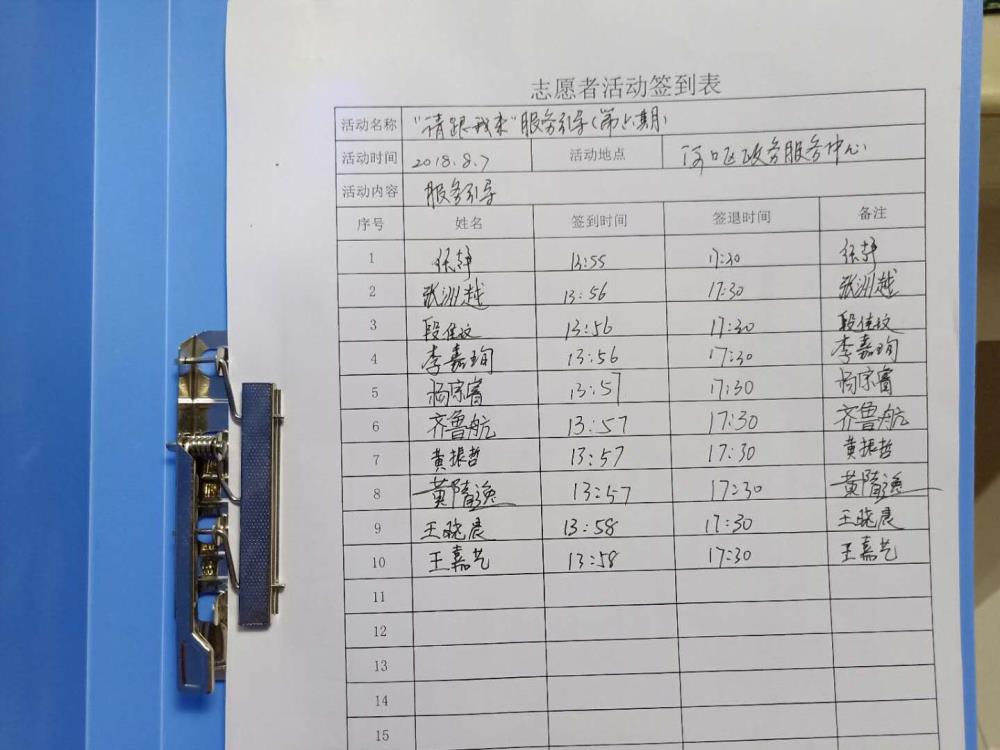 志愿者活动签到表
活动名称 "请跟我来"服务引导(第六期)
活动时间 2018.8.7 活动地点 河口区政务服务中心
活动内容 服务引导
序号 姓名 签到时间 签退时间 备注
1 13:55 17:30
2 张洲越 13:56 17:30 张洲越
3 段佳汶 13:56 17:30 段佳汶
4 李嘉珣 13:56 17:30 李嘉珣
5 杨宗睿 13:57 17:30 杨宗睿
6 齐鲁航 13:57 17:30 齐鲁航
7 黄振哲 13:57 17:30 黄振哲
8 黄隋逸 13:57 17:30 黄隋逸
9 王晓晨 13:58 17:30 王晓晨
10 王嘉艺 13:58 17:30 王嘉艺
11
12
13
14
15